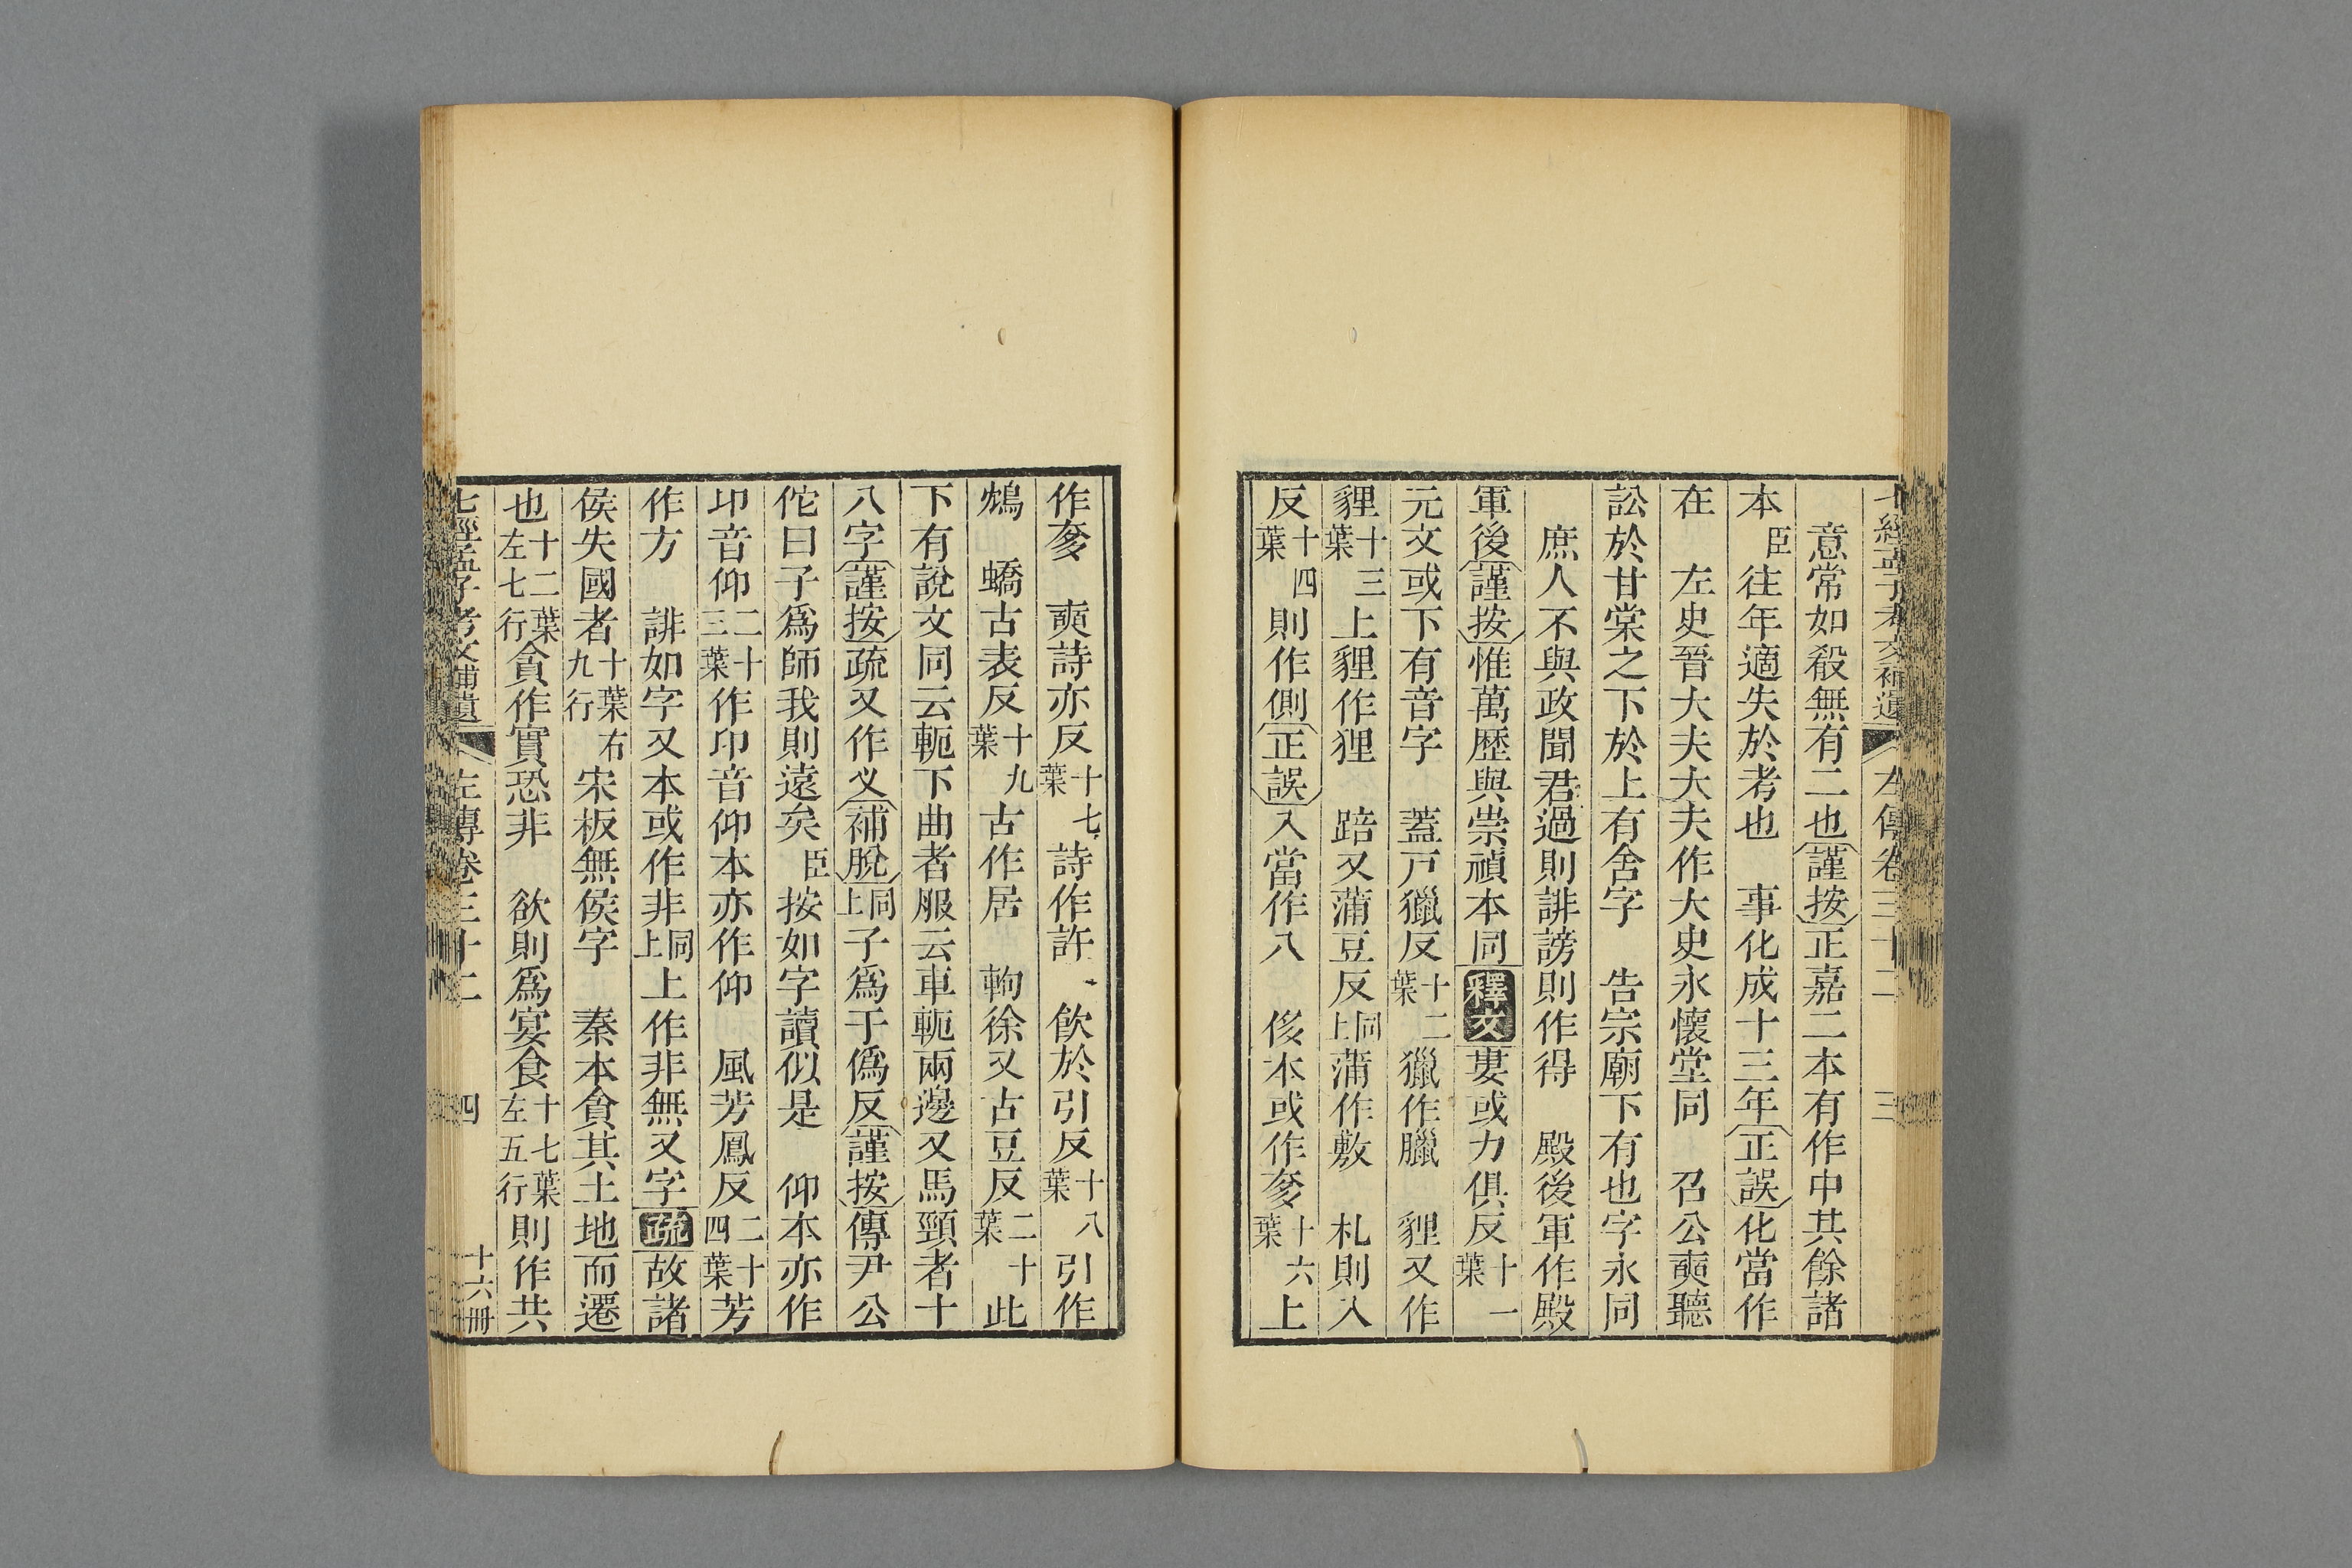 七經孟子考文補遺 左傳卷三十二 三
意常如殺無有二也謹按正嘉二本有作中其餘諸
本臣往年適失於考也 事化成十三年正誤化當作
在 左史晉大夫大夫作大史永懷堂同 召公奭聽
訟於甘棠之下於上有舍字 告宗廟下有也字永同
庶人不與政聞君過則誹謗則作得 殿後軍作殿
軍後謹按惟萬歷與崇禎本同釋文婁或力俱反十一葉
元文或下有音字 蓋戸獵反十二葉獵作臘 貍又作
貍十三葉上貍作狸 踣又蒲豆反同上蒲作敷 札則入
反十四葉則作側正誤入當作八 侈本或作奓十六葉上
作奓 奭詩亦反十七葉詩作許 飲於引反十八葉引作
鴆 蟜古表反十九葉古作居 軥徐又古豆反二十葉此
下有說文同云軛下曲者服云車軛兩邊叉馬頸者十
八字謹按疏又作义補脫同上子爲于僞反謹按傳尹公
佗曰子爲師我則遠矣臣按如字讀似是 仰本亦作
卬音仰二十三葉作印音仰本亦作仰 風芳鳳反二十四葉芳
作方 誹如字又本或作非同上上作非無又字疏故諸
侯失國者十葉右九行宋板無侯字 秦本貪其土地而遷
也十二葉左七行貪作實恐非 欲則爲宴食十七葉左五行則作共
七經孟子考文補遺 左傳卷三十二 四 十六冊